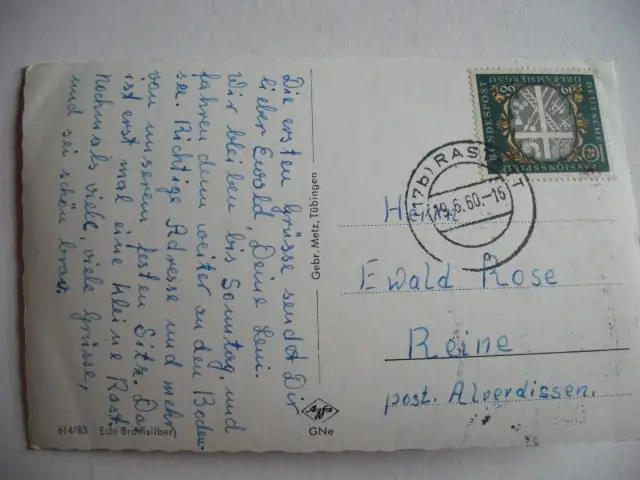 Die ersten Grüsse sendet Dir
lieber Ewald, Deine Leni.
Wir bleiben bis Sonntag, und
fahren dann weiter an den Boden-
see. Richtige Adresse und mehr
von unserem festen Sitz. Das
ist erst mal eine kleine Rast.
Nochmals viele, viele Grüsse,
und sei schön brav.
Gebr. Metz, Tübingen
614/83 Echt Bromsilber
Agfa
GNe
DEUTSCHE BUNDESPOST
OBERAMMERGAU 1960
PASSIONSSPIELE
10
(17b) RAST
19.6.60.-16
Herrn
Ewald Rose
Reine
post. Alverdissen.